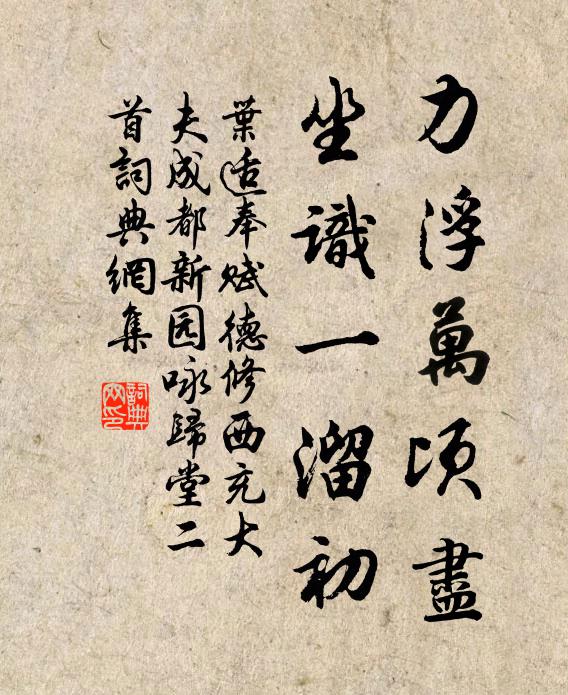 力浮萬頃盡
坐識一溜初
葉适奉赋德修西充大
夫成都新园咏歸堂二
首詞典網集
詞典
网印